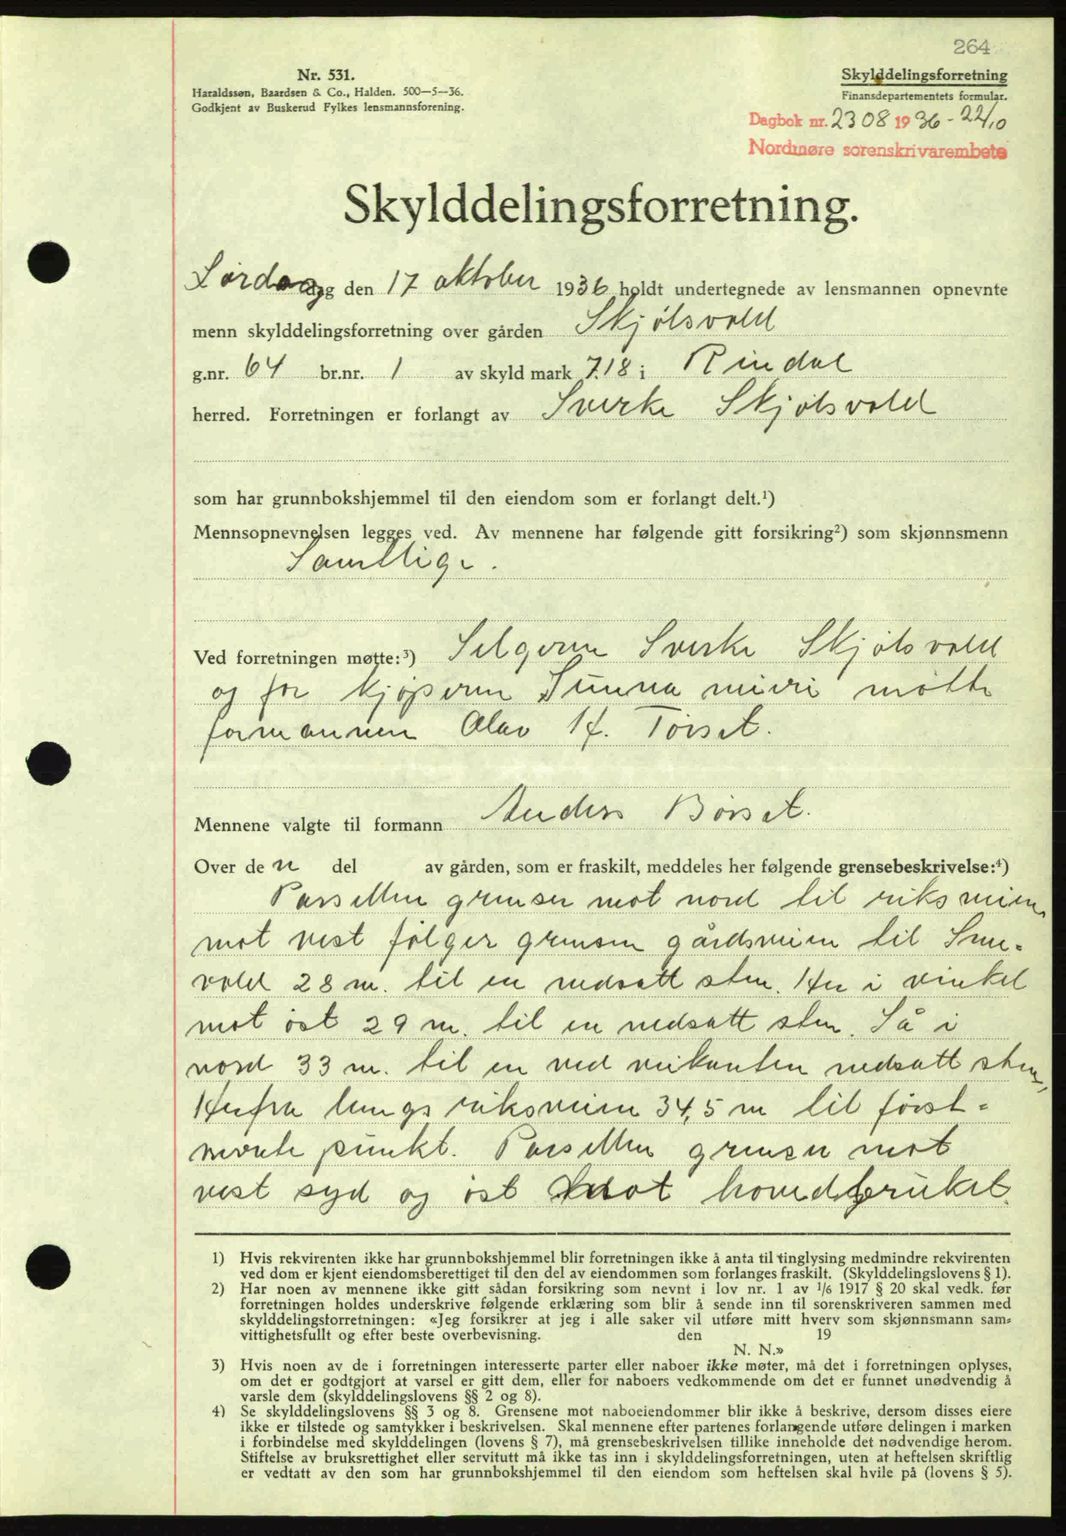 264
Nr. 531.
Haraldssøn, Baardsen & Co., Halden. 500—5—36.
Godkjent av Buskerud Fylkes lensmannsforening.
Skylddelingsforretning
Finansdepartementets formular.
Dagbok nr. 2308 1936 - 22/10
Nordmøre sorenskrivarembete
Skylddelingsforretning.
Lørdag den 17 oktober 1936 holdt undertegnede av lensmannen opnevnte
menn skylddelingsforretning over gården Skjølsvold
g.nr. 64 br.nr. 1 av skyld mark 7.18 i Rindal
herred. Forretningen er forlangt av Sverke Skjølsvold
som har grunnbokshjemmel til den eiendom som er forlangt delt.¹)
Mennsopnevnelsen legges ved. Av mennene har følgende gitt forsikring²) som skjønnsmenn
Samtlige.
Ved forretningen møtte:³) Selgeren Sverke Skjølsvold
og for kjøperen Sunna meieri møtte
formannen Olav H. Torset.
Mennene valgte til formann Anders Børset.
Over de n del av gården, som er fraskilt, meddeles her følgende grensebeskrivelse:⁴)
Parsellen grenser mot nord til riksveien,
mot vest følger grensen gårdsveien til Sne-
vold 28 m. til en nedsatt sten. Her i vinkel
mot øst 29 m. til en nedsatt sten. Så i
nord 33 m. til en ved veikanten nedsatt sten,
Herfra langs riksveien 34,5 m til først-
nevnte punkt. Parsellen grenser mot
vest syd og øst mot hovedbruket.
1) Hvis rekvirenten ikke har grunnbokshjemmel blir forretningen ikke å anta til tinglysing medmindre rekvirenten
ved dom er kjent eiendomsberettiget til den del av eiendommen som forlanges fraskilt. (Skylddelingslovens § 1).
2) Har noen av mennene ikke gitt sådan forsikring som nevnt i lov nr. 1 av 1/6 1917 § 20 skal vedk. før
forretningen holdes underskrive følgende erklæring som blir å sende inn til sorenskriveren sammen med
skylddelingsforretningen: «Jeg forsikrer at jeg i alle saker vil utføre mitt hverv som skjønnsmann sam-
vittighetsfullt og efter beste overbevisning. den 19
N. N.»
3) Hvis noen av de i forretningen interesserte parter eller naboer ikke møter, må det i forretningen oplyses,
om det er godtgjort at varsel er gitt dem, eller for naboers vedkommende om det er funnet unødvendig å
varsle dem (skylddelingslovens §§ 2 og 8).
4) Se skylddelingslovens §§ 3 og 8. Grensene mot naboeiendommer blir ikke å beskrive, dersom disses eiere
ikke er tilstede og samtykker i beskrivelsen. Skal mennene efter partenes forlangende utføre delingen i marken
i forbindelse med skylddelingen (lovens § 7), må grensebeskrivelsen tillike inneholde det nødvendige herom.
Stiftelse av bruksrettighet eller servitutt må ikke tas inn i skylddelingsforretningen, uten at heftelsen skriftlig
er vedtatt av den som har grunnbokshjemmel til den eiendom som heftelsen skal hvile på (lovens § 5).